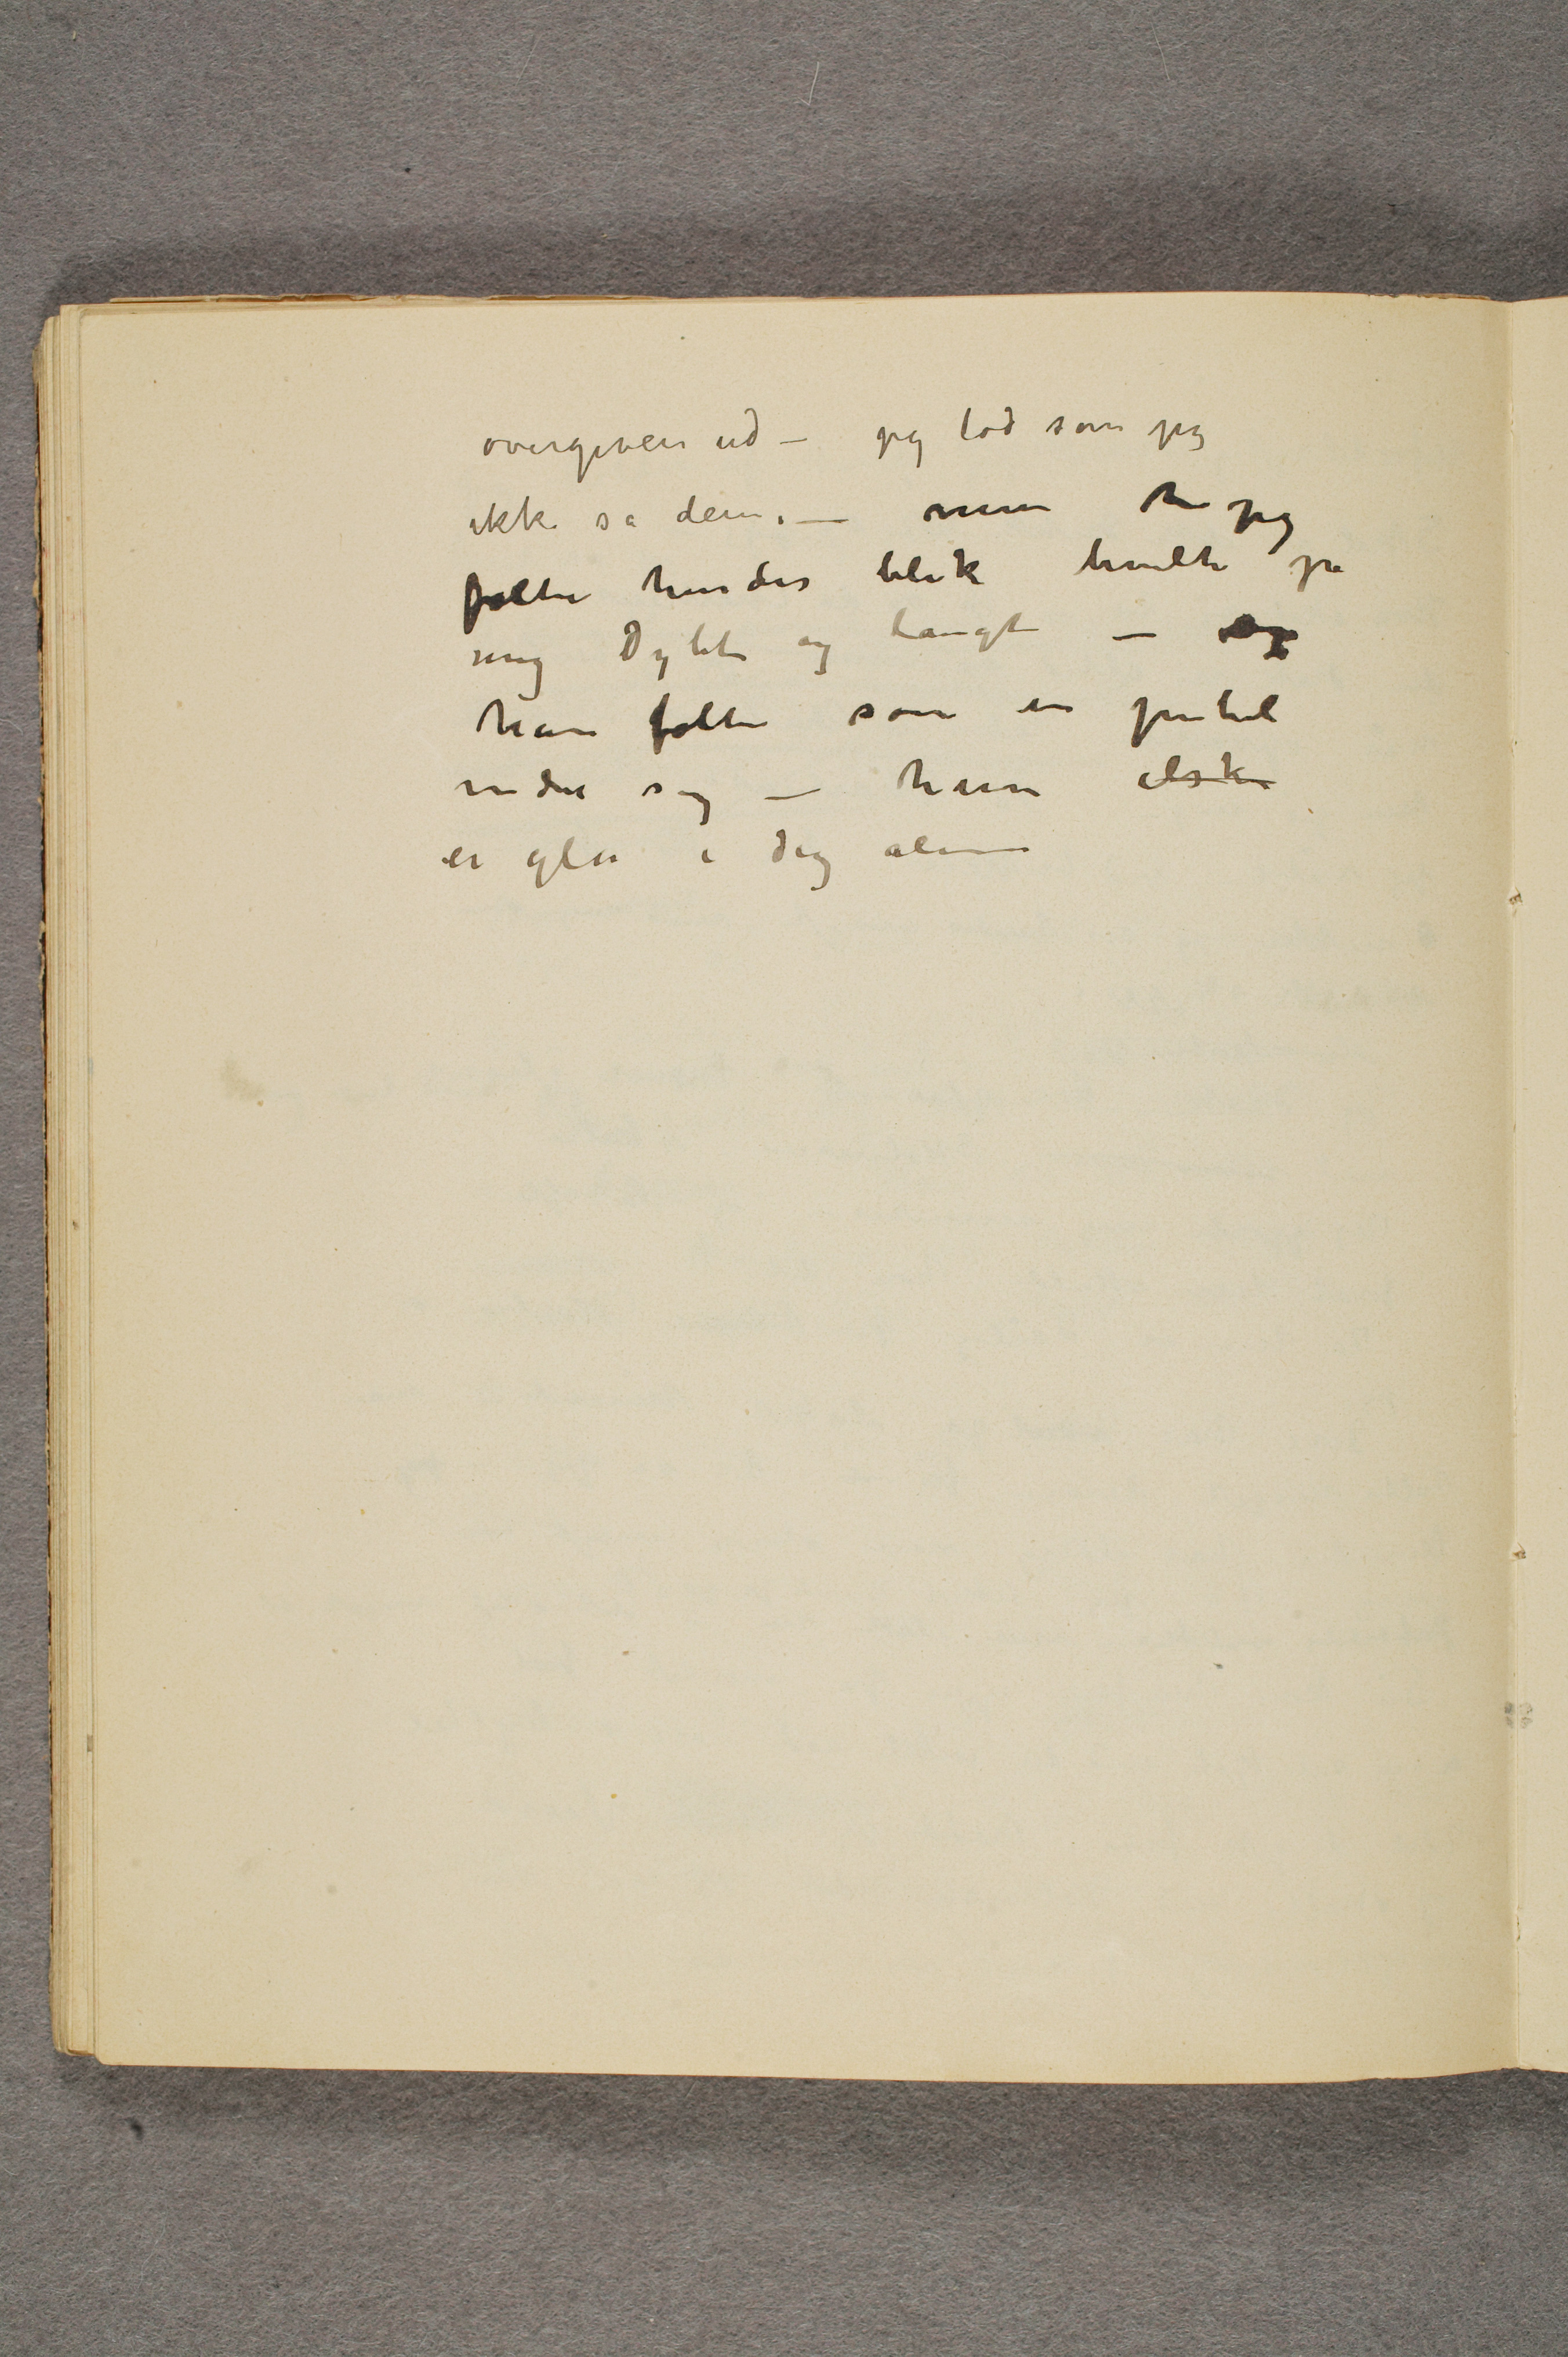 overgiven ud – jeg lod som jeg
ikke så dem, – men jeg
følte hendes blik hvilte på
mig Dybt og langt – og
han følte som en jubel
inden sig – hun elsker
er glad i dig alene